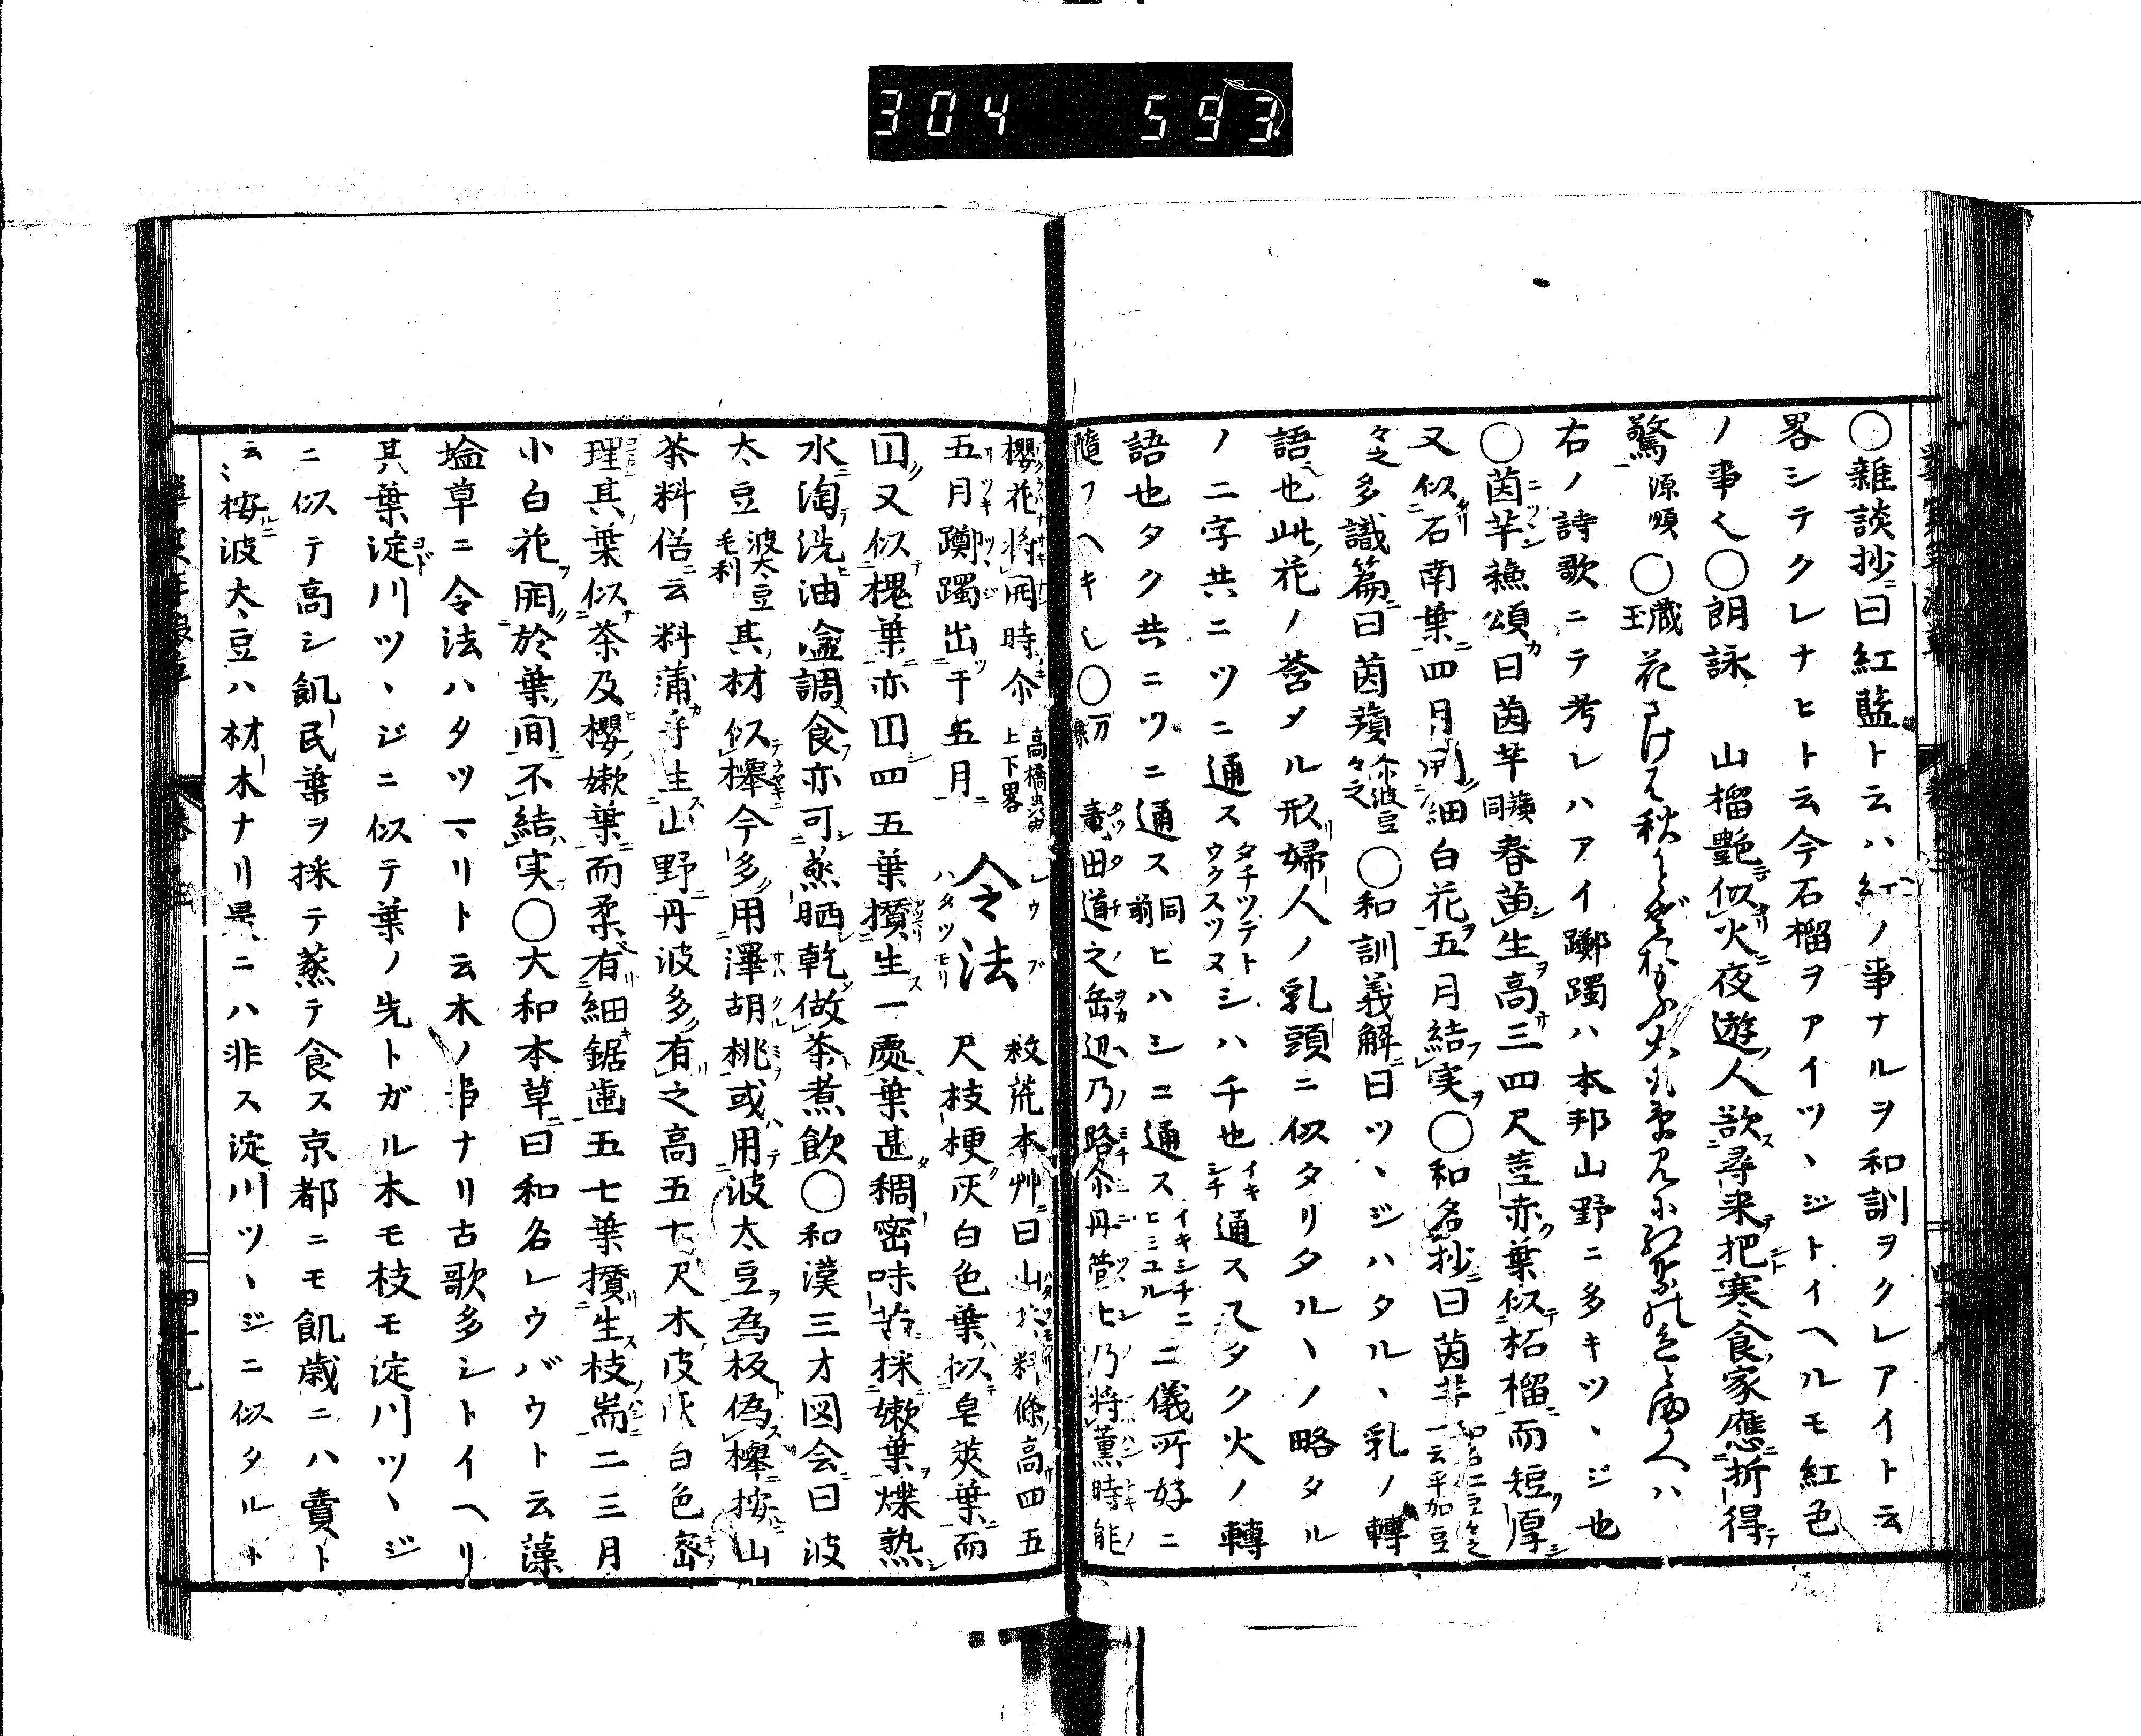 304 593
○雜談抄ニ曰紅藍ト云ハ紅ノ事ナルヲ和訓ヲクレアイト云
畧シテクレナヒト云今石榴ヲアイツヽジトイヘルモ紅色
ノ事也○朗詠 山榴艶似火夜遊人欲尋来把寒食家應折得
驚 源順 ○藏玉 花さけは秋
右ノ詩歌ニテ考レハアイ躑躅ハ本邦山野ニ多キツヽジ也
○茵芋蘓頌曰茵芋蘓同春苗生高三四尺莖赤葉似柘榴而短厚
又似石南葉四月開細白花五月結実○和名抄ニ曰茵芋和名仁豆々之一云乎加豆
々之多識篇ニ曰茵蕷尓波豆々之○和訓義解ニ曰ツヽジハタルヽ乳ノ轉
語也此花ノ莟タル形婦人ノ乳頭ニ似タリタルヽノ略タル
ノ二字共ニツニ通スタチツテトウクスツヌシハチ也イキシチ通ス又タク火ノ轉
語也タク共ニツニ通ス同前ヒハシニ通スイキシチニヒミユル二儀所好ニ
隨フヘキ也○万 龍田道之岳辺乃路尓丹管士乃将薫時能
櫻花将開時尓 上下畧 五月躑躅出于五月
令法 レウブ ハタツモリ
救荒本艸ニ曰山茶科條高四五
尺枝梗灰白色葉似皂莢葉而
団又似槐葉亦団四五葉攅生一處葉甚稠密味苦採嫩葉煠熟
水淘洗油盬調食亦可蒸晒乾做茶煮飲○和漢三才図会ニ曰波
太豆 波太豆毛利 其材似欅今多用澤胡桃或用波太豆為板偽欅按山
茶料俗云料蒲乎生山野丹波多有之高五七尺木皮灰白色密
理其葉似茶及櫻嫩葉而柔有細鋸齒五七葉攅生枝耑二三月
小白花開於葉間不結実○大和本草ニ曰和名レウバウト云藻
塩草ニ令法ハタツマリト云木ノ事ナリ古歌多シトイヘリ
其葉淀川ツヽジニ似テ葉ノ先トガル木モ枝モ淀川ツヽジ
ニ似テ高シ飢民葉ヲ採テ蒸テ食ス京都ニモ飢歳ニハ賣ト
云〻按波太豆ハ材木ナリ是ニハ非ス淀川ツヽジニ似タルト